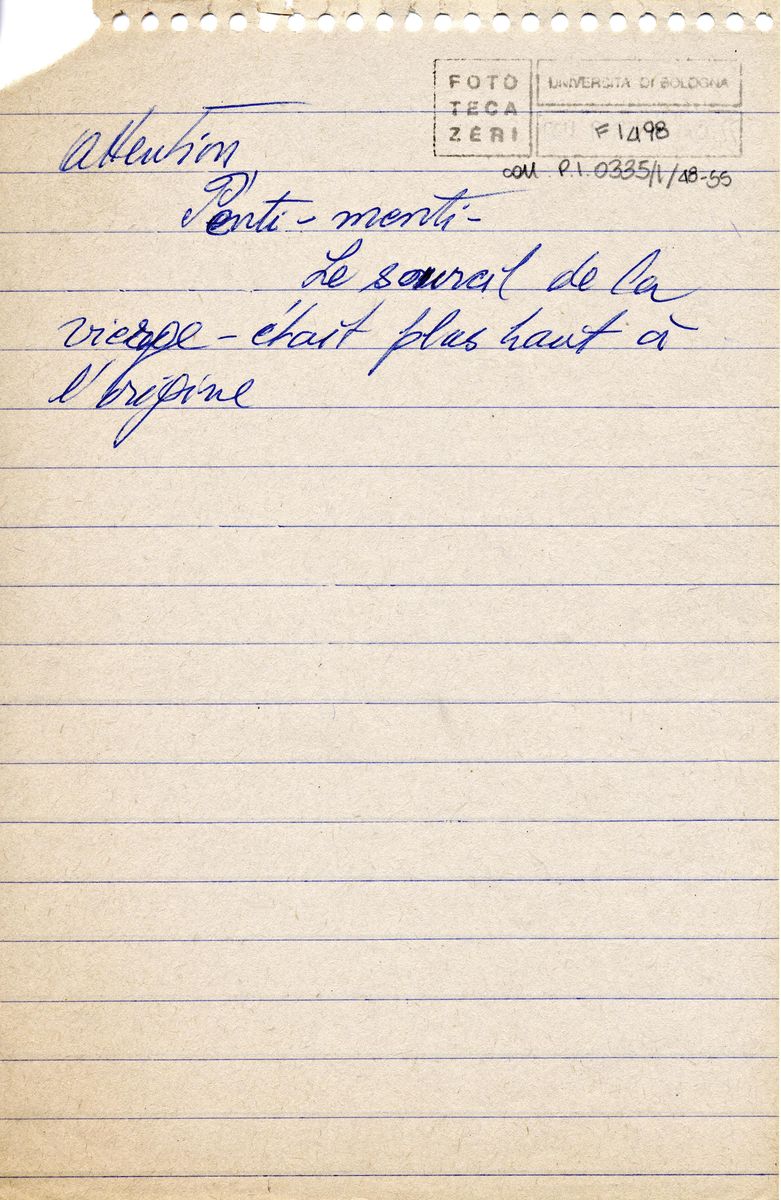 FOTO
TECA
ZERI
UNIVERSITÀ DI BOLOGNA
F1498
con P.I.0335/1/48-55
attention
Penti-menti-
Le sourcil de la
vierge - était plus haut à
l'origine